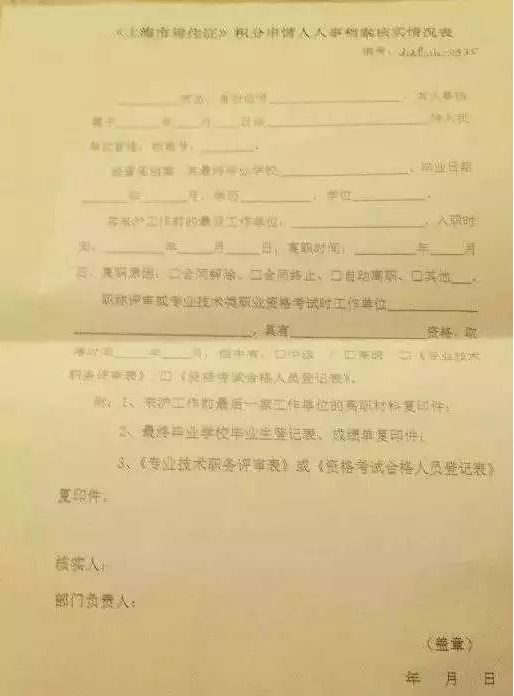 《上海市居住证》积分申请人人事档案核实情况表
编号：
同志，身份证号____________，其人事档
案于____年____月____日由____________转入我
单位管理，档案号：______。
经查阅档案，其最终毕业学校____________，毕业日期
____年____月，学历________，学位________。
来沪工作前的最后工作单位：____________，入职时
间：______年____月____日，离职时间：______年____月____
日，离职原因：□合同解除、□合同终止、□自动离职、□其他__。
职称评审或专业技术类职业资格考试时工作单位________
________________，具有____________资格，取
得时间____年____月，档中有：□中级 / □高级 □《专业技术
职务评审表》/□《资格考试合格人员登记表》。
附：1、来沪工作前最后一家工作单位的离职材料复印件；
2、最终毕业学校毕业生登记表、成绩单复印件；
3、《专业技术职务评审表》或《资格考试合格人员登记表》
复印件。
核实人：
部门负责人：
（盖章）
年 月 日